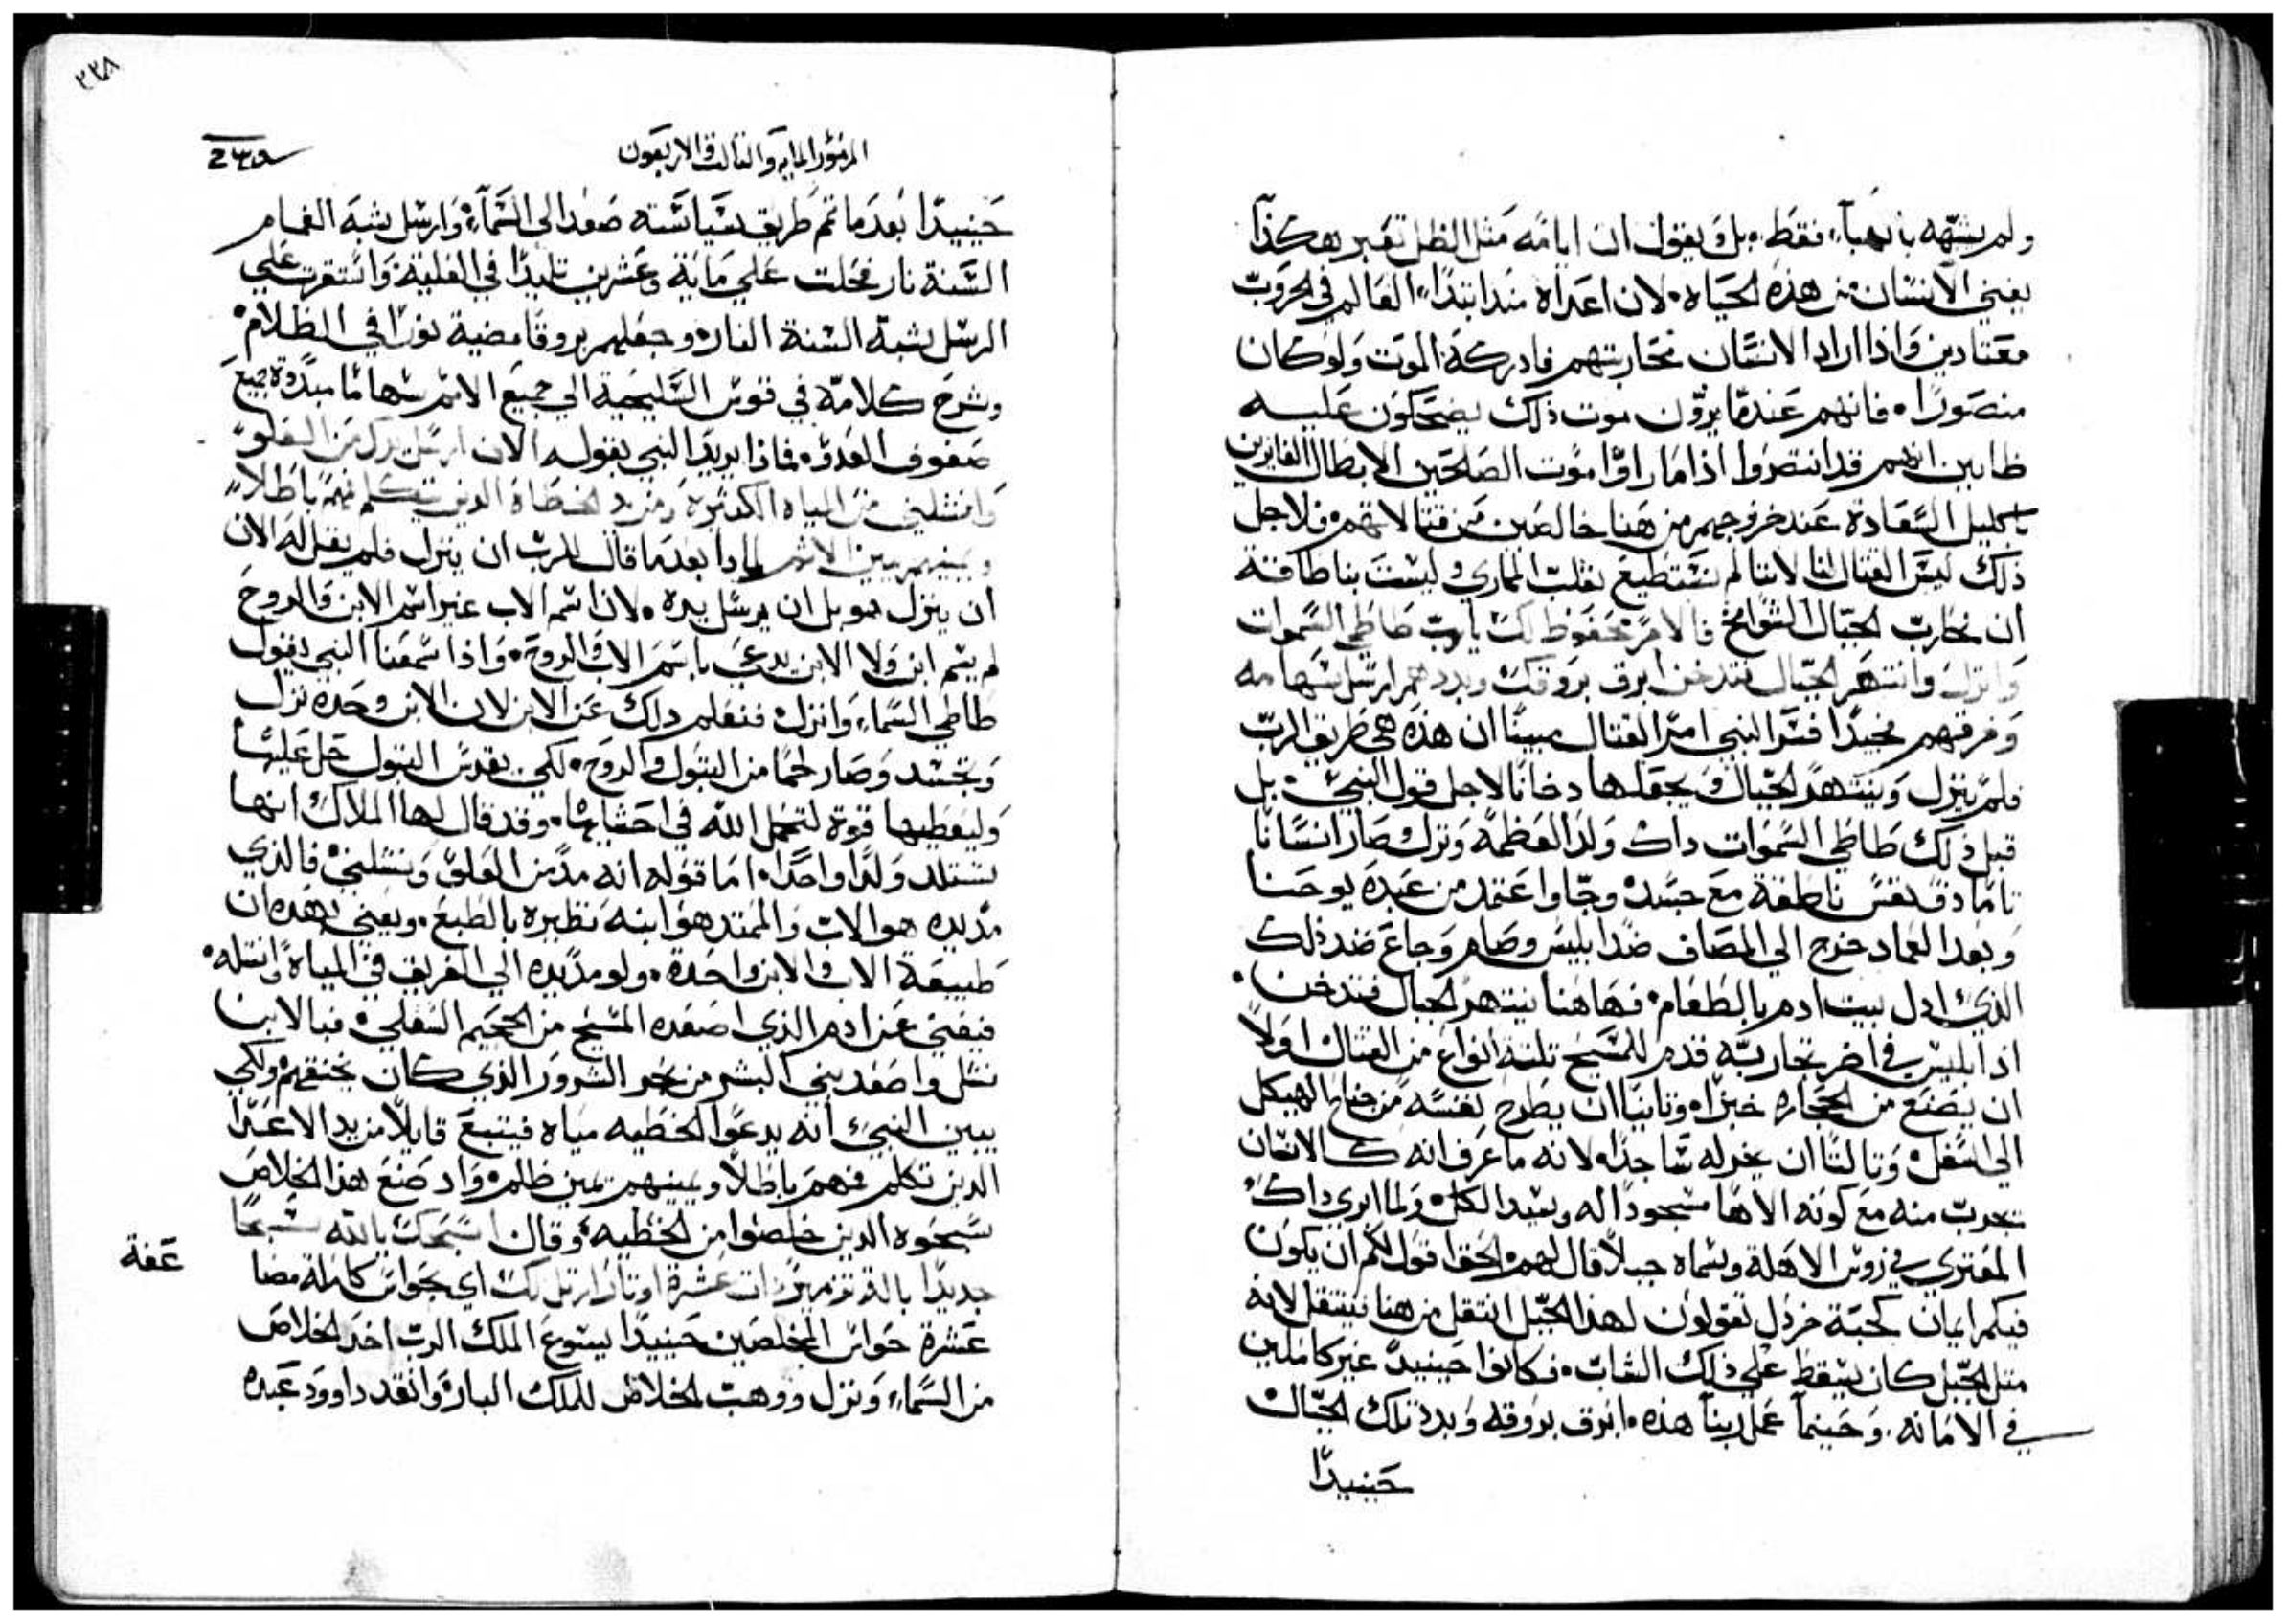 ولم يشبهه بالهباء فقط، بل ويقول ان ايامه مثل الظل تعبر هكذا
يعني الانسان من هذه الحياه. لان اعداه منذ ابتداء العالم في الحروب
معتادين واذا اراد الانسان محاربتهم فادركه الموت ولو كان
منصورًا. فانهم عندما يروّن موت ذلك يضحكون عليه
ظانين انهم قد انتصروا اذا ما راوّا موت الصالحين الابطال الفايزين
باكليل السعادة عند خروجهم من هنا خالصين من قتالاتهم. فلاجل
ذلك ليس القتال لنا لاننا لم نستطيع نغلب المماري وليست بنا طاقته
ان نحارب الجبال الشوامخ فالامر محفوظ لك يارب طاطي السموات
وانزل وانتهر الجبال فتدخن ابرق بروقك وبددهم ارسل سهامه
وفرقهم فحينيدًا فسّر النبي امر القتال مبينًا ان هذه هي طريق الربّ
فلم ينزل وينتهر الجبال ويجعلها دخانًا لاجل قول النبي. بل
قبل ذلك طاطي السموات داك ولد العظمه ونزل وصار انسانًا
تامًا دو نفس ناطقة مع جسد. وجا واعتمد من عبده يوحنا
وبعد العماد خرج الي المصاف ضد ابليس وصام وجاع ضد ذلك
الذي ادل بيت ادم بالطعام. فهاهنا ينتهر الجبال فتدخن.
اد ابليس في اخر تحاربيه قدم للمسيح تلته انواع من القتال اولاً
ان يصنع من الحجاره خبزًا. وتانيًا ان يطرح نفسه من جناح الهيكل
الي اسفل. وتالتًا ان يخر له ساجدًا. لانه ما عرف انه كالانسان
يتجرب منه مع كونه الاهًا مسجودًا له وسيد الكل. ولما انري داك
المفتري في زوس الاهلة وسماه جبلاً قال لهم الحق اقول لكم ان يكون
فيكم ايمان كحبّة خردل تقولون لهذا الجبل انتقل من هنا فينتقل لانه
متل الجبل كان يسقط علي ذلك الشاب. فكانوا حينيدً غير كاملين
في الامانه. وحينما عمل ربنا هذه. ابرق بروقه وبدد تلك الجبال
حينيدًا
٢٢٨
المزمور المايه والتالت والاربعون
حينيدًا بعد ما تم طريق سياسته صعد الي السماء وارسل شبه الغمام
السنة نار فحلت علي ماية وعشرين تلميدًا في العلية. واستقرت علي
الرسل بشبه السنة النار وجعلهم بروقًا مضية نورًا في الظلام.
وشرح كلامه في قوس السليحية الي جميع الامم سهامًا مبددة جميع
صفوف العدو. فماذا يريد النبي بقوله الان ارسل يدك من العلو
وانتشلني من المياه الكثيرة ومن يد الخطاة الدين يتكلم فمهم باطلاً
ويمينهم يمين الاثم لمادا بعد ما قال للرب ان ينزل فلم يقل له الان
ان ينزل هو بل ان يرسل يده. لان اسم الاب غير اسم الابن والروح
لم يسم ابن ولا الابن يدعي باسم الاب والروح. واذا سمعنا النبي يقول
طاطي السماء وانزل. فنعلم دلك عن الابن لان الابن وحده نزل
وتجسد وصار لحمًا من البتول والروح. لكي يقدس البتول حل عليها
وليعطيها قوة لتحمل الله في احشايها. وقد قال لها الملاك انها
ستلد ولدًا واحدًا. اما قوله انه مدّ من العلو ونشلني فالذي
مدّ يده هو الاب والممتد هو ابنه نظيره بالطبع. ويعني بهده ان
طبيعة الاب والابن واحدة. ولو مدّ يده الي الغريق في المياه وانتله.
فيعني عن ادم الذي اصعده المسيح من الجحيم السفلي. فبالابن
نشل واصعد بني البشر من بحر الشرور الذي كان يخنقهم ولكي
يبين النبي انه يدعوا الخطيه مياه فيتبع قايلاً من يد الاعدا
الدين تكلم فمهم باطلاً ويمينهم يمين ظلم. واد صنع هذا الخلاص
سبحوه الدين خلصوا من الخطيه. وقال اسبحك يالله تسبيحًا
جديدًا بالة مزمير ذات عشرة اوتار ارتل لك اي بحواس كاملة مضا
عفة
عشرة حواس المخلصين حينيدًا يسوع الملك الرب اخد الخلاص
من السماء ونزل ووهب الخلاص للملك البار وانقد داوود عبده